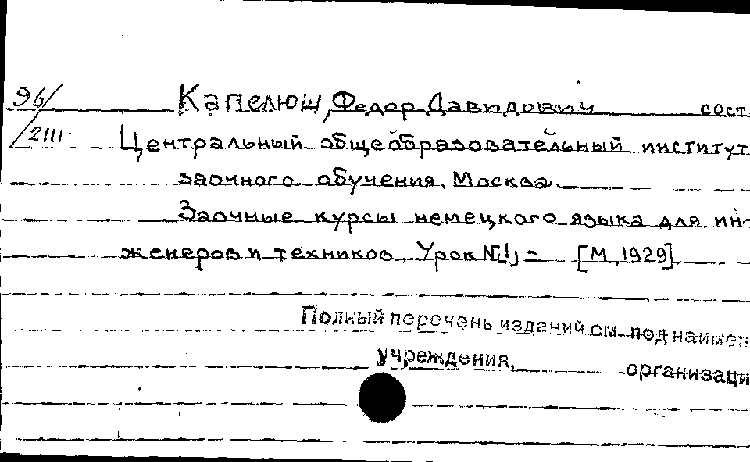 96/ Капелюш, Федор Давидович сост.
/2111 Центральный общеобразовательный институт
заочного обучения. Москва.
Заочные курсы немецкого языка для ин-
женеров и техников. Урок №1,- [М, 1929]
Полный перечень изданий см. под наимен
учреждения, организаци